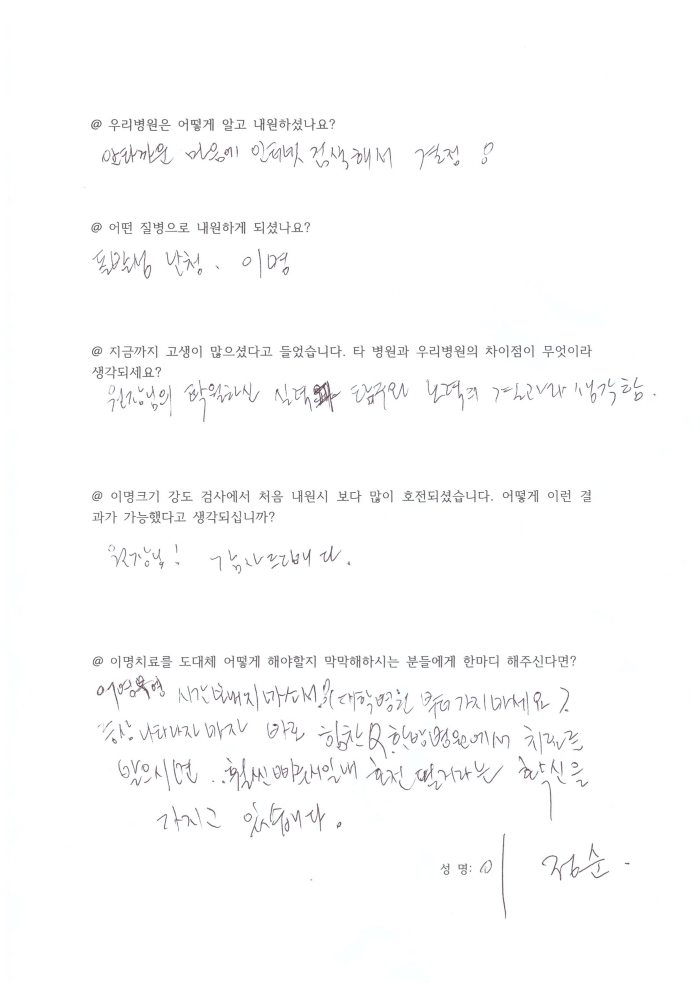 @ 우리병원은 어떻게 알고 내원하셨나요?
안타까운 마음에 인터넷 검색해서 결정
@ 어떤 질병으로 내원하게 되셨나요?
돌발성 난청. 이명
@ 지금까지 고생이 많으셨다고 들었습니다. 타 병원과 우리병원의 차이점이 무엇이라
생각되세요?
원장님의 탁월하신 실력 탐구와 노력의 결과라 생각함.
@ 이명크기 강도 검사에서 처음 내원시 보다 많이 호전되셨습니다. 어떻게 이런 결
과가 가능했다고 생각되십니까?
원장님! 감사드립니다.
@ 이명치료를 도대체 어떻게 해야할지 막막해하시는 분들에게 한마디 해주신다면?
시간 보내지 마소서 대학병원 부터 가지마세요?
증상 나타나자마자 바로 힘찬 큐 한방병원에서 치료를
받으시면 .. 훨씬 빠른시일내 호전 될거라는 확신을
가지고 있습니다.
성 명: 이 정순.